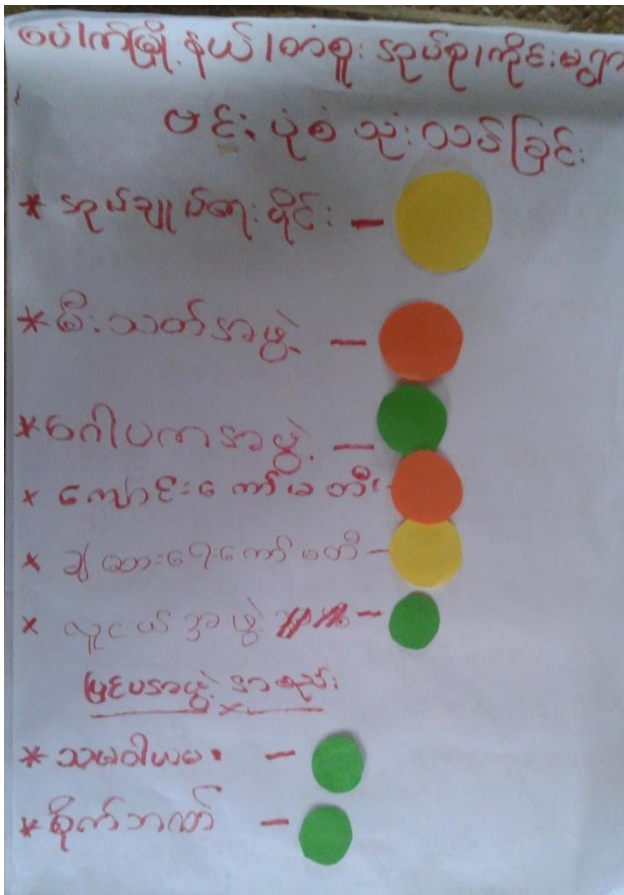 ပေါက်မြို့နယ်၊တံစူး အုပ်စု၊ကိုင်းမရွာ
ဗင်းပုံစံသုံးသပ်ခြင်း
* အုပ်ချုပ်ရေးပိုင်း –
* မီးသတ်အဖွဲ့ –
* ဂေါပကအဖွဲ့ –
× ကျောင်းကော်မတီ -
× ချဲဆားရေးကော်မတီ –
× လူငယ်အဖွဲ့ –
ပြင်ပအဖွဲ့အစည်း
* သမဝါယမ –
* စိုက်ဘဏ် –